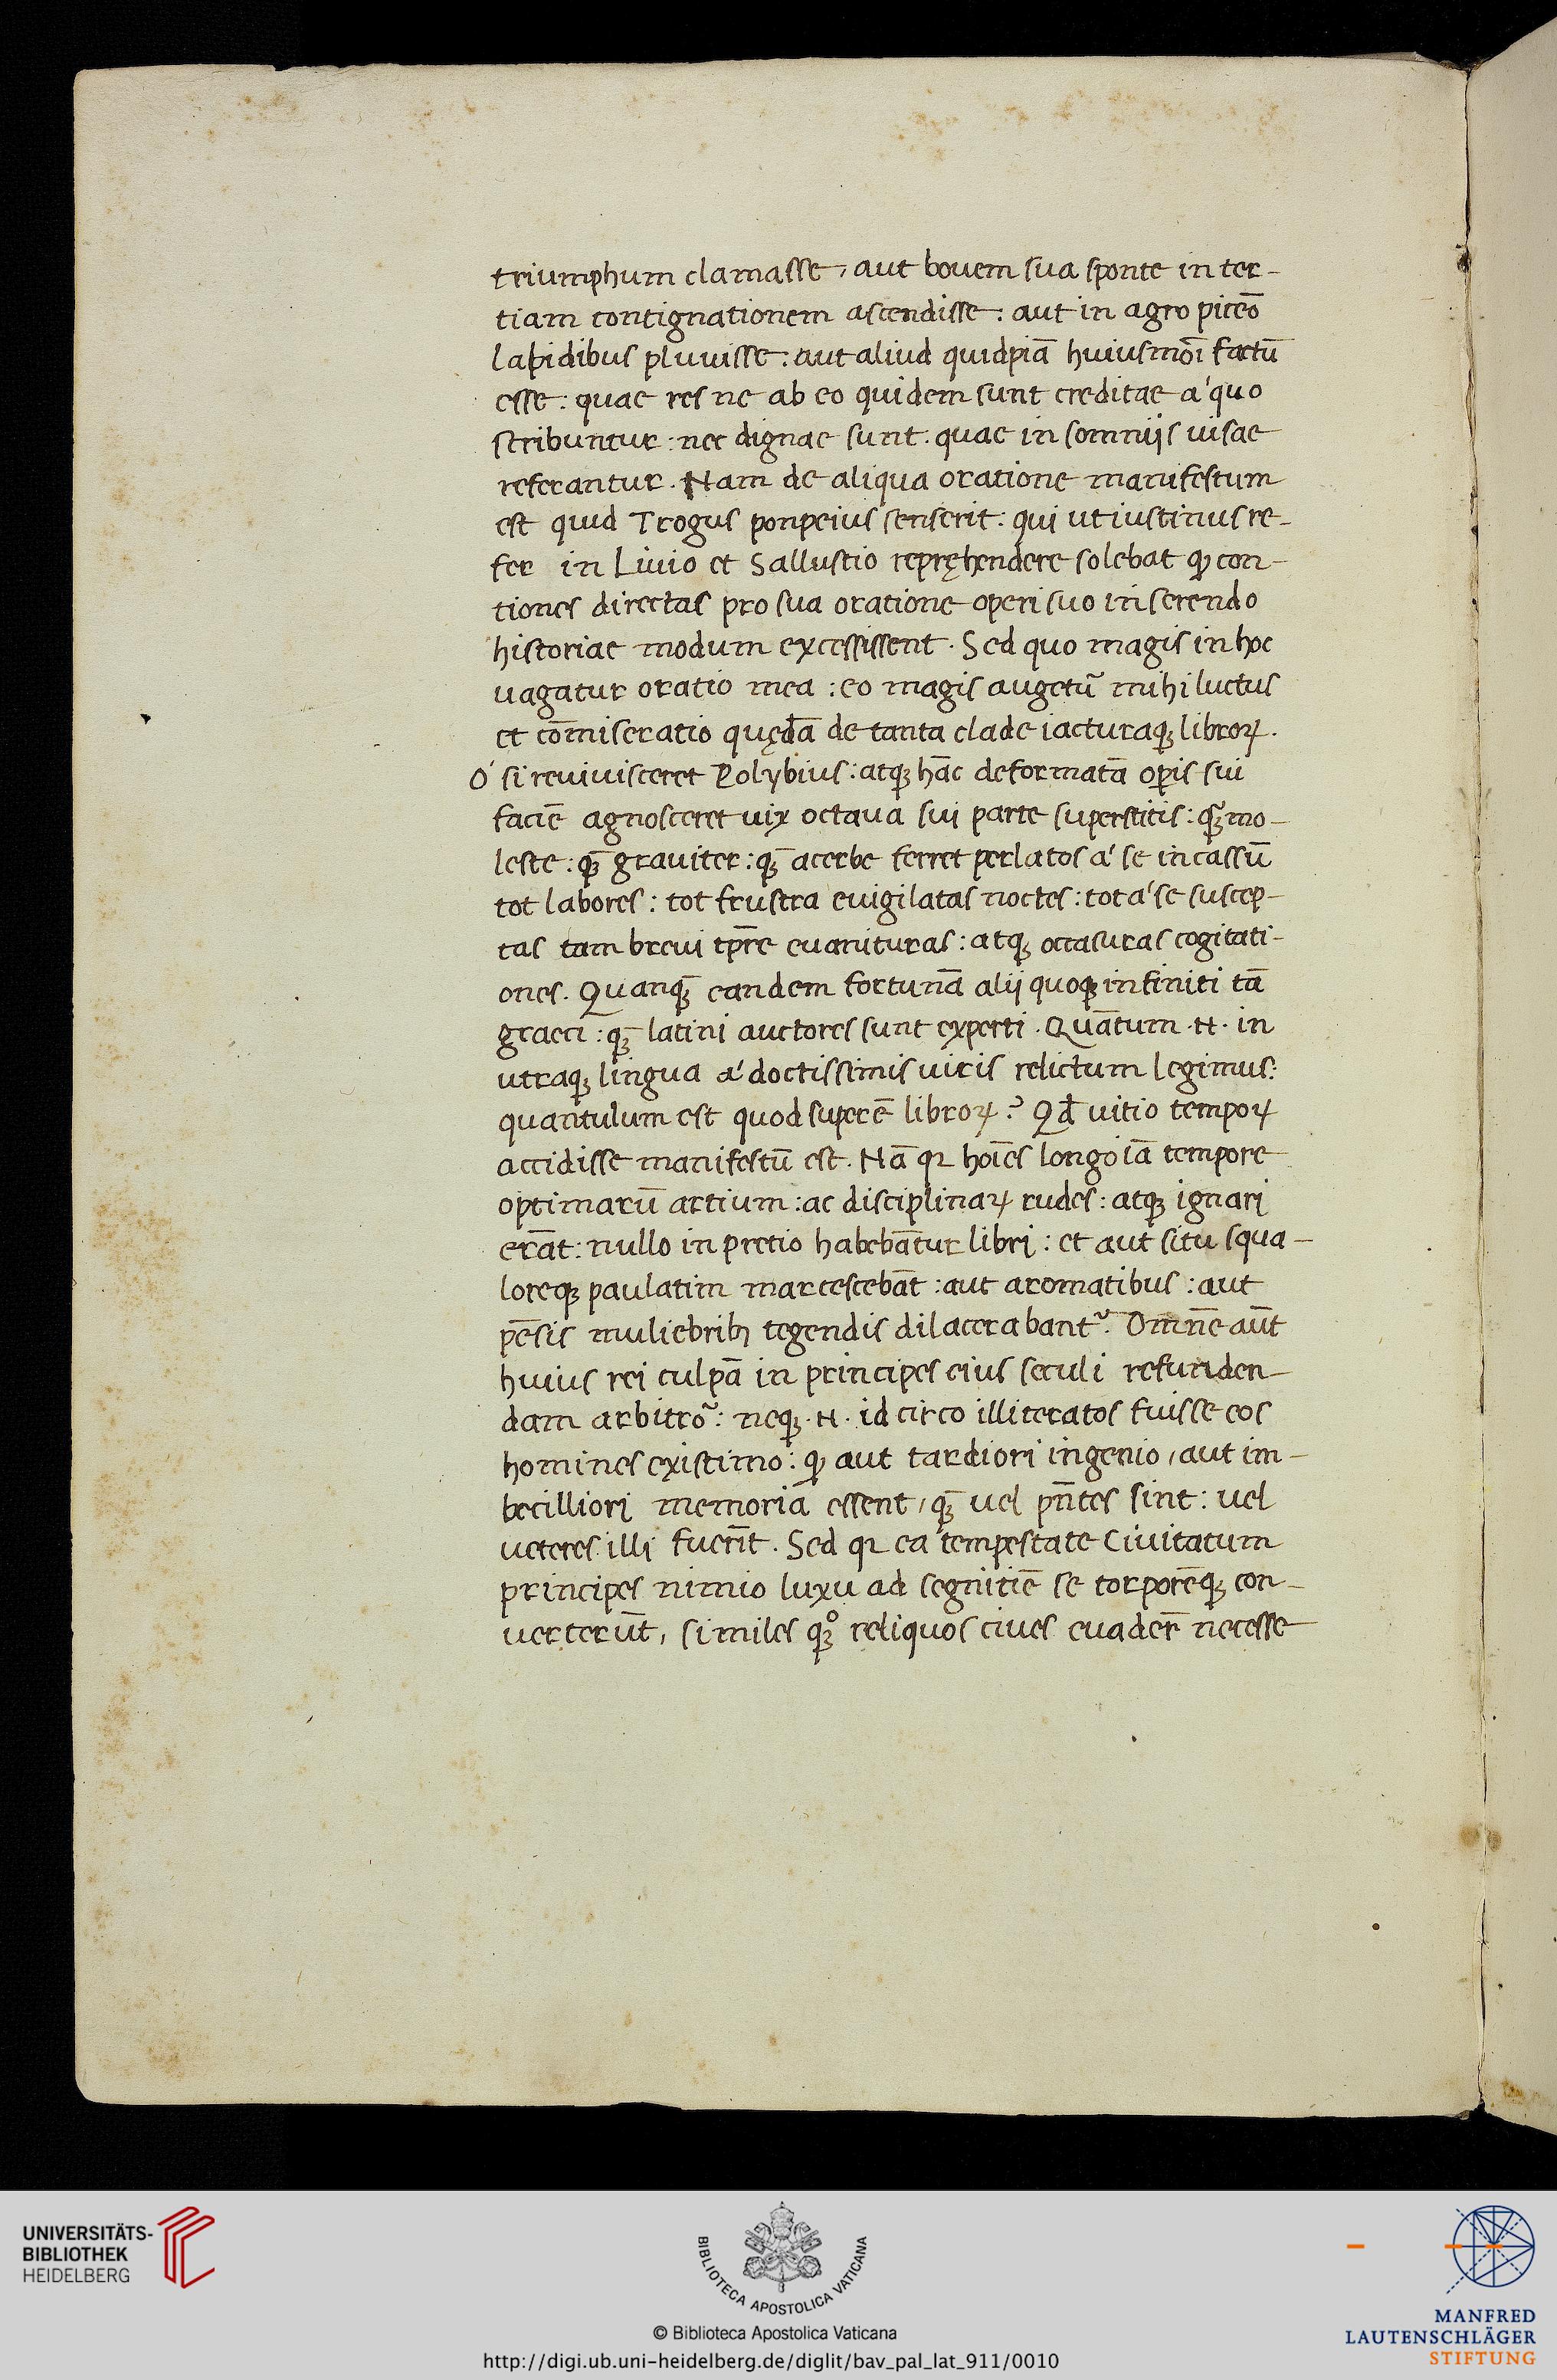 triumphum clamasse, aut bouem sua sponte in ter-
tiam contignationem ascendisse: aut in agro piceō
lapidibus pluuisse: aut aliud quidpiā huiusmōi factū
esse: quae res ne ab eo quidem sunt creditae á quo
scribuntur: nec dignae sunt. quae in somnijs uisae
referantur. Nam de aliqua oratione manifestum
est quid Trogus ponpeius senserit: qui ut iustinus re-
fer in Liuio et Sallustio repręhendere solebat ꝙ con-
tiones directas pro sua oratione operi suo inserendo
historiae modum excessissent. Sed quo magis in hoc
uagatur oratio mea: eo magis augetu᷑ mihi luctus
et cōmiseratio quędā de tanta clade iacturaqꝫ libroꝝ.
Ó si reuiuisceret Polybius: atqꝫ hāc deformatā op̄is sui
faciē agnosceret uix octaua sui parte superstitis: qꝫ̄ mo-
leste: qꝫ̄ grauiter: qꝫ̄ acerbe ferret perlatos á se incassū
tot labores: tot frustra euigilatas noctes: tot á se suscep-
tas tam breui tp̄re euanituras: atqꝫ occasuras cogitati-
ones. Quanqꝫ̄ eandem fortunā alij quoqꝫ infiniti tā
graeci: qꝫ̄ latini auctores sunt experti. Quātum .N. in
utraqꝫ lingua á doctissimis uiris relictum legimus:
quantulum est quod superē libroꝝ? Qđ uitio tempoꝝ
accidisse manifestū est. Nā qꝛ hoīes longo iā tempore
optimarū artium: ac disciplinaꝝ rudes: atqꝫ ignari
erāt: nullo in pretio habebātur libri: et aut situ squa-
loreqꝫ paulatim marcescebāt: aut aromatibus: aut
pēsis muliebribꝫ tegendis dilacerabant᷑. Omnē aūt
huius rei culpā in principes eius seculi refunden-
dam arbitro᷑: neqꝫ .N. idcirco illiteratos fuisse eos
homines existimo: ꝙ aut tardiori ingenio, aut im-
becilliori memoria essent, qꝫ̄ uel pn̄tes sint: uel
ueteres illi fuerīt. Sed qꝛ ea tempestate Ciuitatum
principes nimio luxu ad segnitiē se torporēqꝫ con-
uerterūt, similes qꝫͦ reliquos ciues euader̄ necesse
UNIVERSITÄTS-
BIBLIOTHEK
HEIDELBERG
BIBLIOTECA APOSTOLICA VATICANA
© Biblioteca Apostolica Vaticana
http://digi.ub.uni-heidelberg.de/diglit/bav_pal_lat_911/0010
MANFRED
LAUTENSCHLÄGER
STIFTUNG